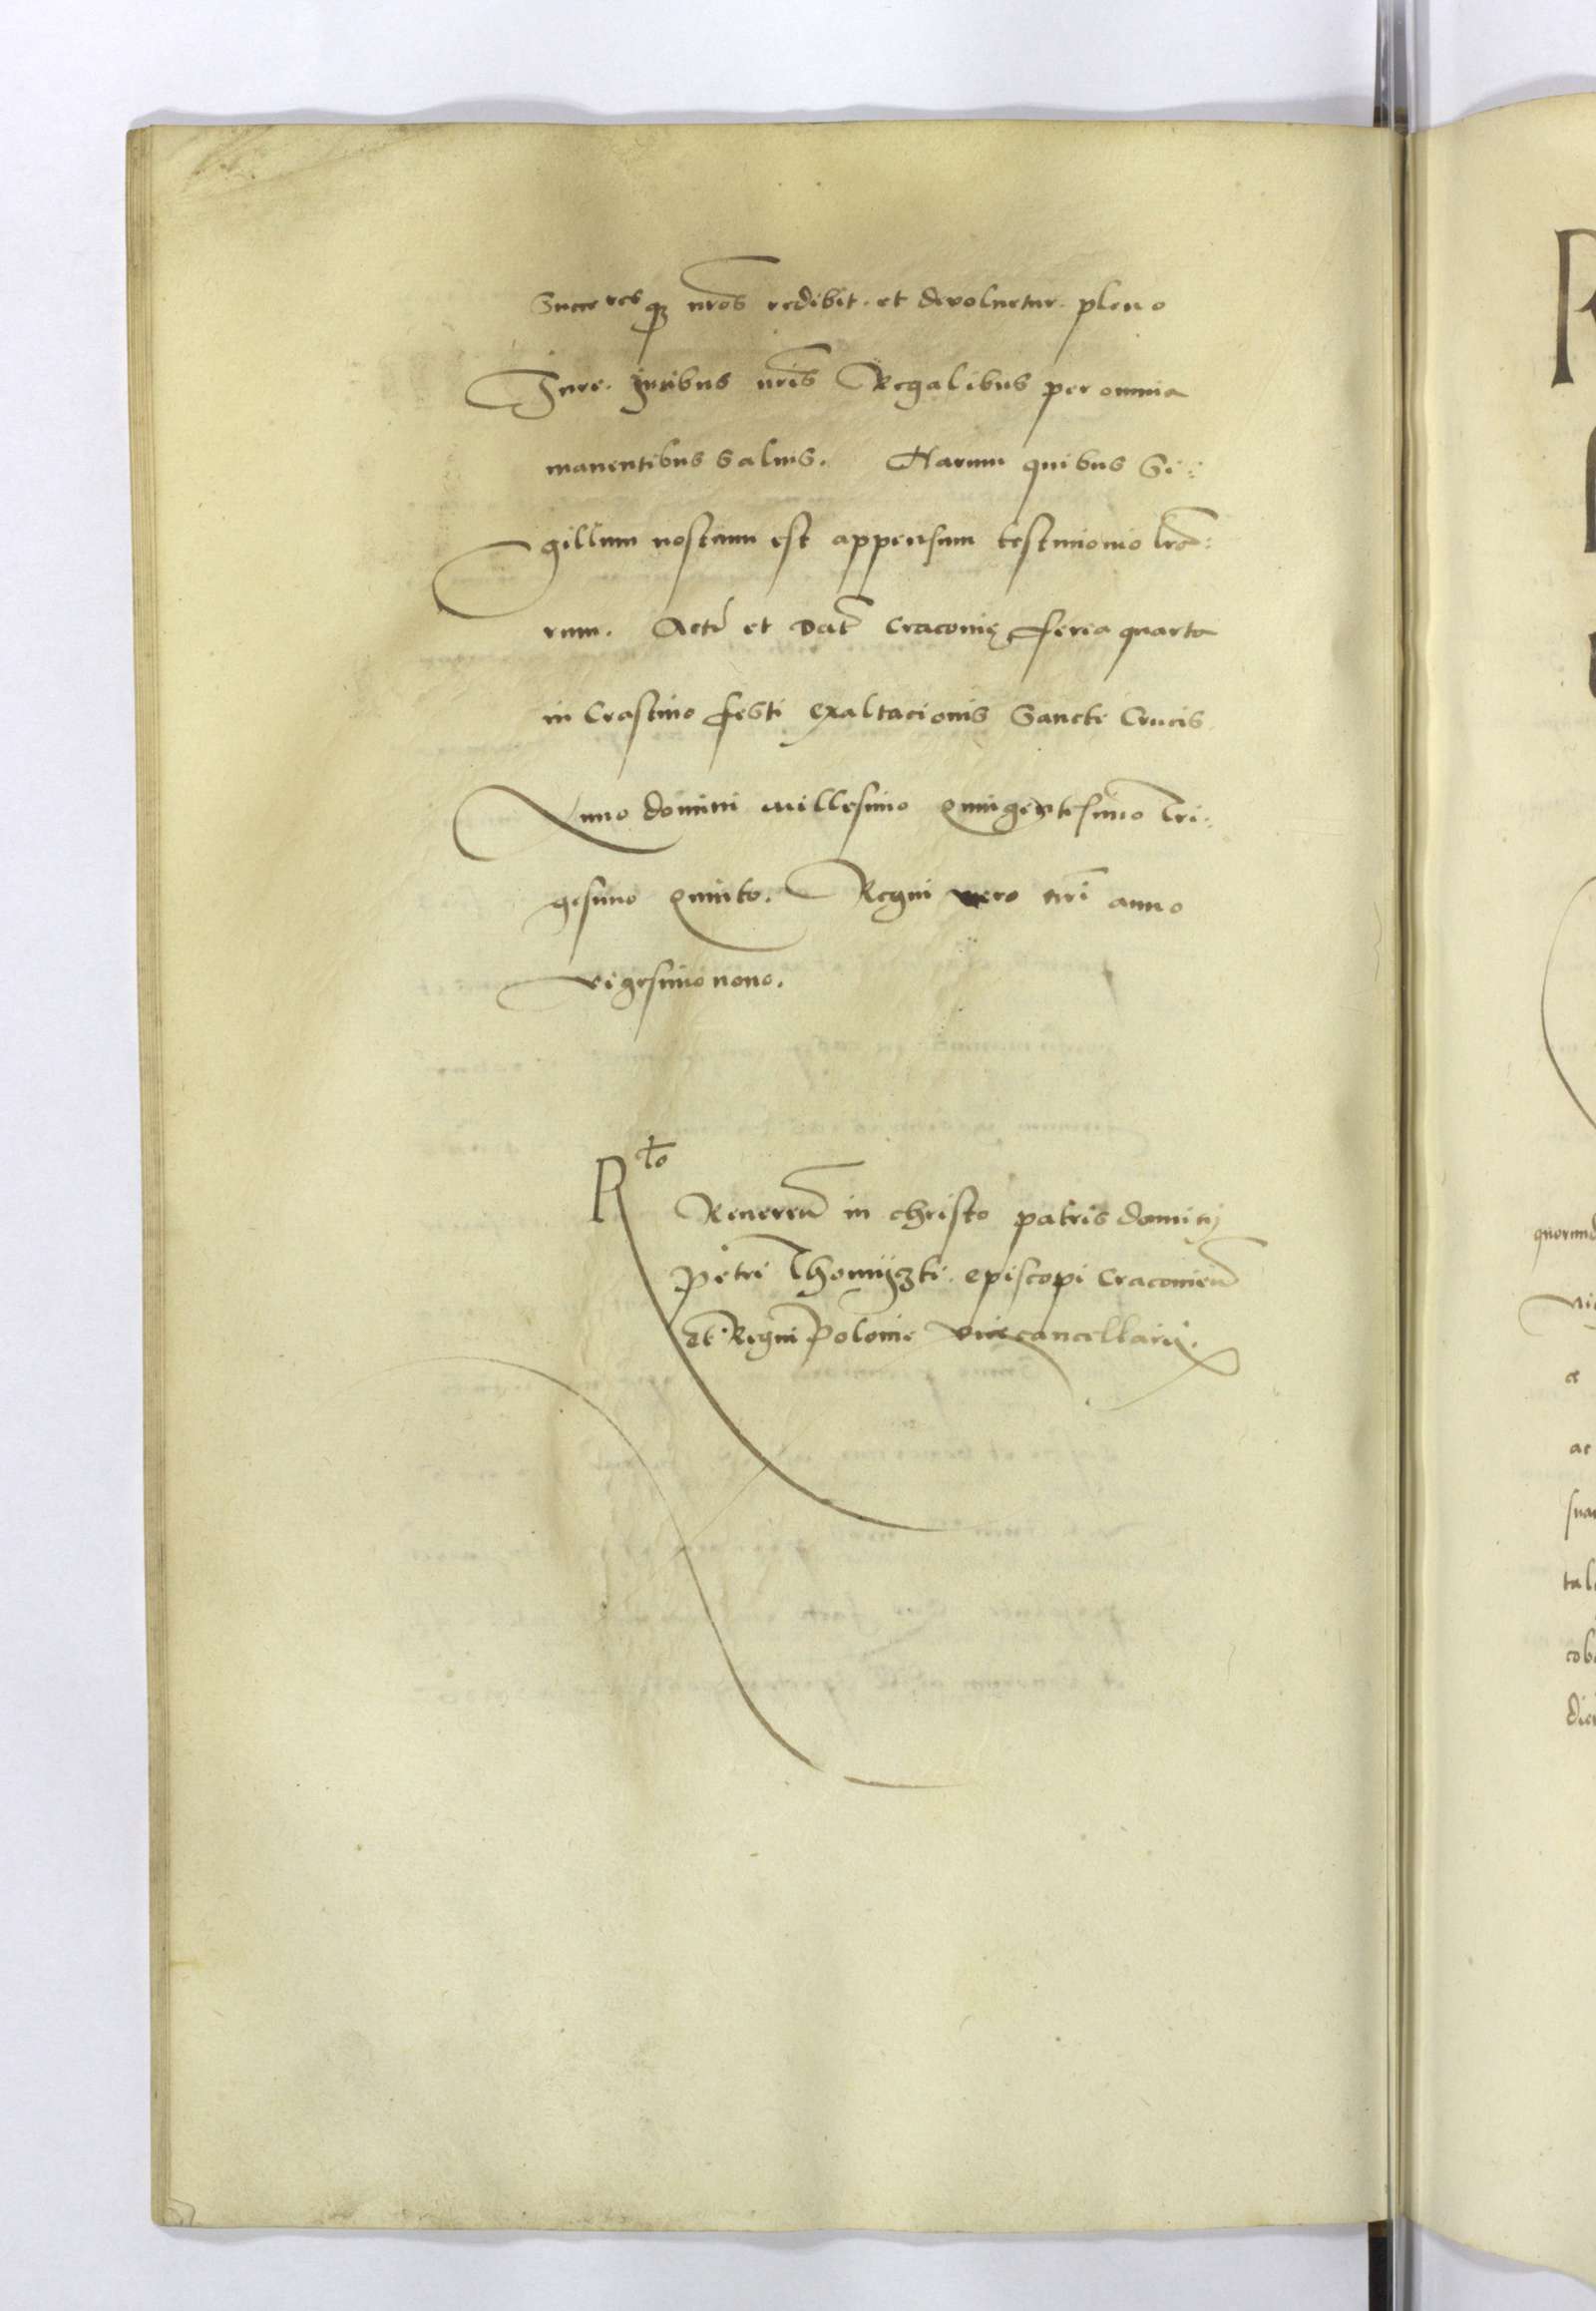 Succeres qz nros redibit. et devoluetur. pleno
Jure. Juribus nris Regalibus per omnia
manentibus Saluis. Harum quibus Si:
gillum nostrum est appensum testimonio lra:
rum. Acta et Dat Cracovię feria quarta
in Crastino festi exaltacionis Sancte Crucis
Anno domini millesimo quingentesimo Tri:
gesimo quinto. Regni vero nri anno
vigesimonono.
Rto
Reueren in christo patris domini
Petri Thomyczki. episcopi Cracovien
Et Regni Polonie vicecancellarij.
quorund
vi
a
ac
sua
tal
cob
dic